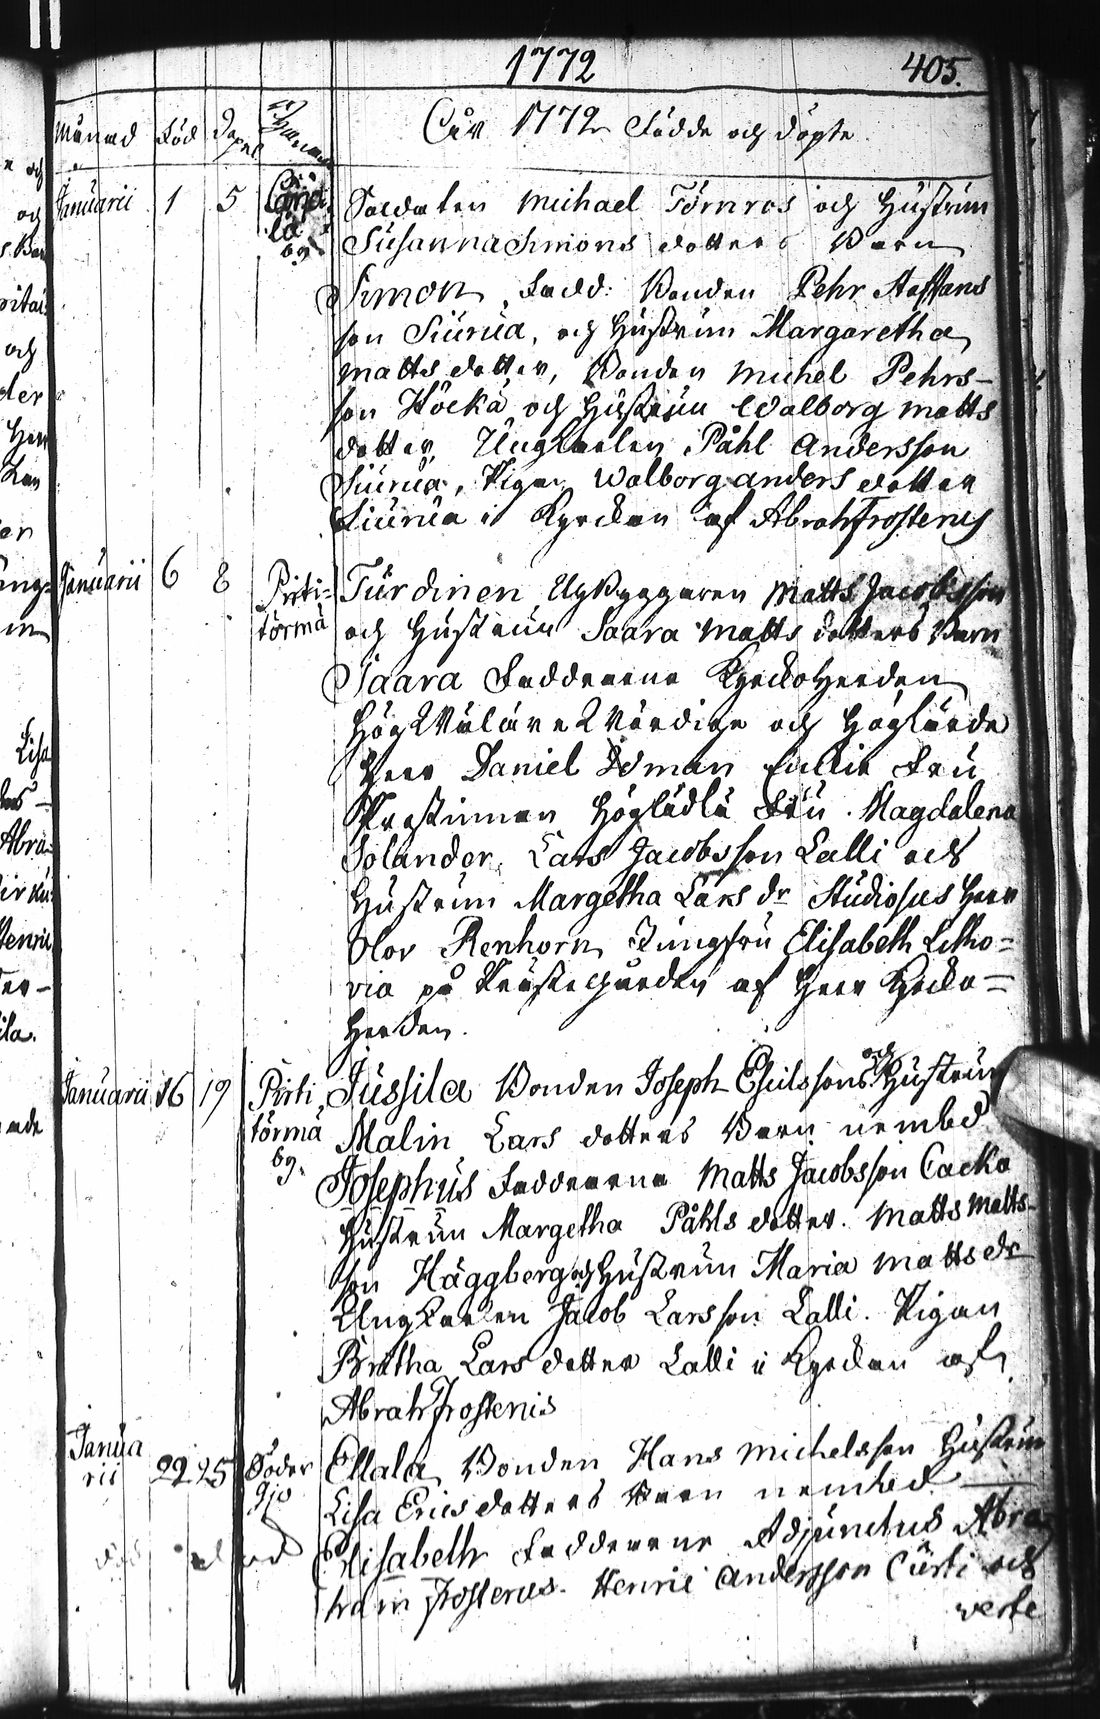 1772
405.
Månad Född Döpt
Åhr 1772 Födde och döpte
Januarii 1 5
Soldaten Michael Törnros och Hustrun
Susanna Simons dotters Barn
Simon, Fadd: Bonden Pehr Staffans
son Siurua, och Hustrun Margaretha
Matts dotter, Bonden Michel Pehrs-
son Höckä och Hustrun Walborg Matts
dotter, Ungkarlen Påhl Andersson
Siurua, Pigan Walborg Anders dotter
Siurua i Kyrckan af Abrah Frostenis
Januarii 6 8
Pirti-
törmä
Turdinen Nybyggaren Matts Jacobsson
och Hustrun Saara Matts dotters Barn
Saara Faddrarne KyrckoHerden
Herr Daniel Fru
Prostinnan Fru Magdalena
Solander. Lars Jacobsson Lalli och
Hustrun Margetha Lars dr Studiosus Herr
Olov Renhorn Jungfru Elisabeth Litho-
via på Prästegården af Herr Kyrcko-
Herden.
Januarii 16 19
Pirti
törmä
by.
Jussila Bonden Joseph Eskilssons och Hustrun
Malin Lars dotters Barn nembd
Josephus Faddrarne Matts Jacobsson Cacko
Hustrun Margetha Påhls dotter. Matts Matts-
son Häggberg och Hustrun Maria Matts dr
Ungkarlen Jacob Larsson Lalli. Pigan
Britha Lars dotter Lalli i Kyrckan af
Abrah Frostenis
Janua
rii 22 25
Söder
Ellala Bonden Hans Michelsson Hustrun
Lisa Erics dotters Barn nembd
Elisabeth Faddrarne Adjunctus Abra
ham Frosterus. Henric Andersson Curti och
verte